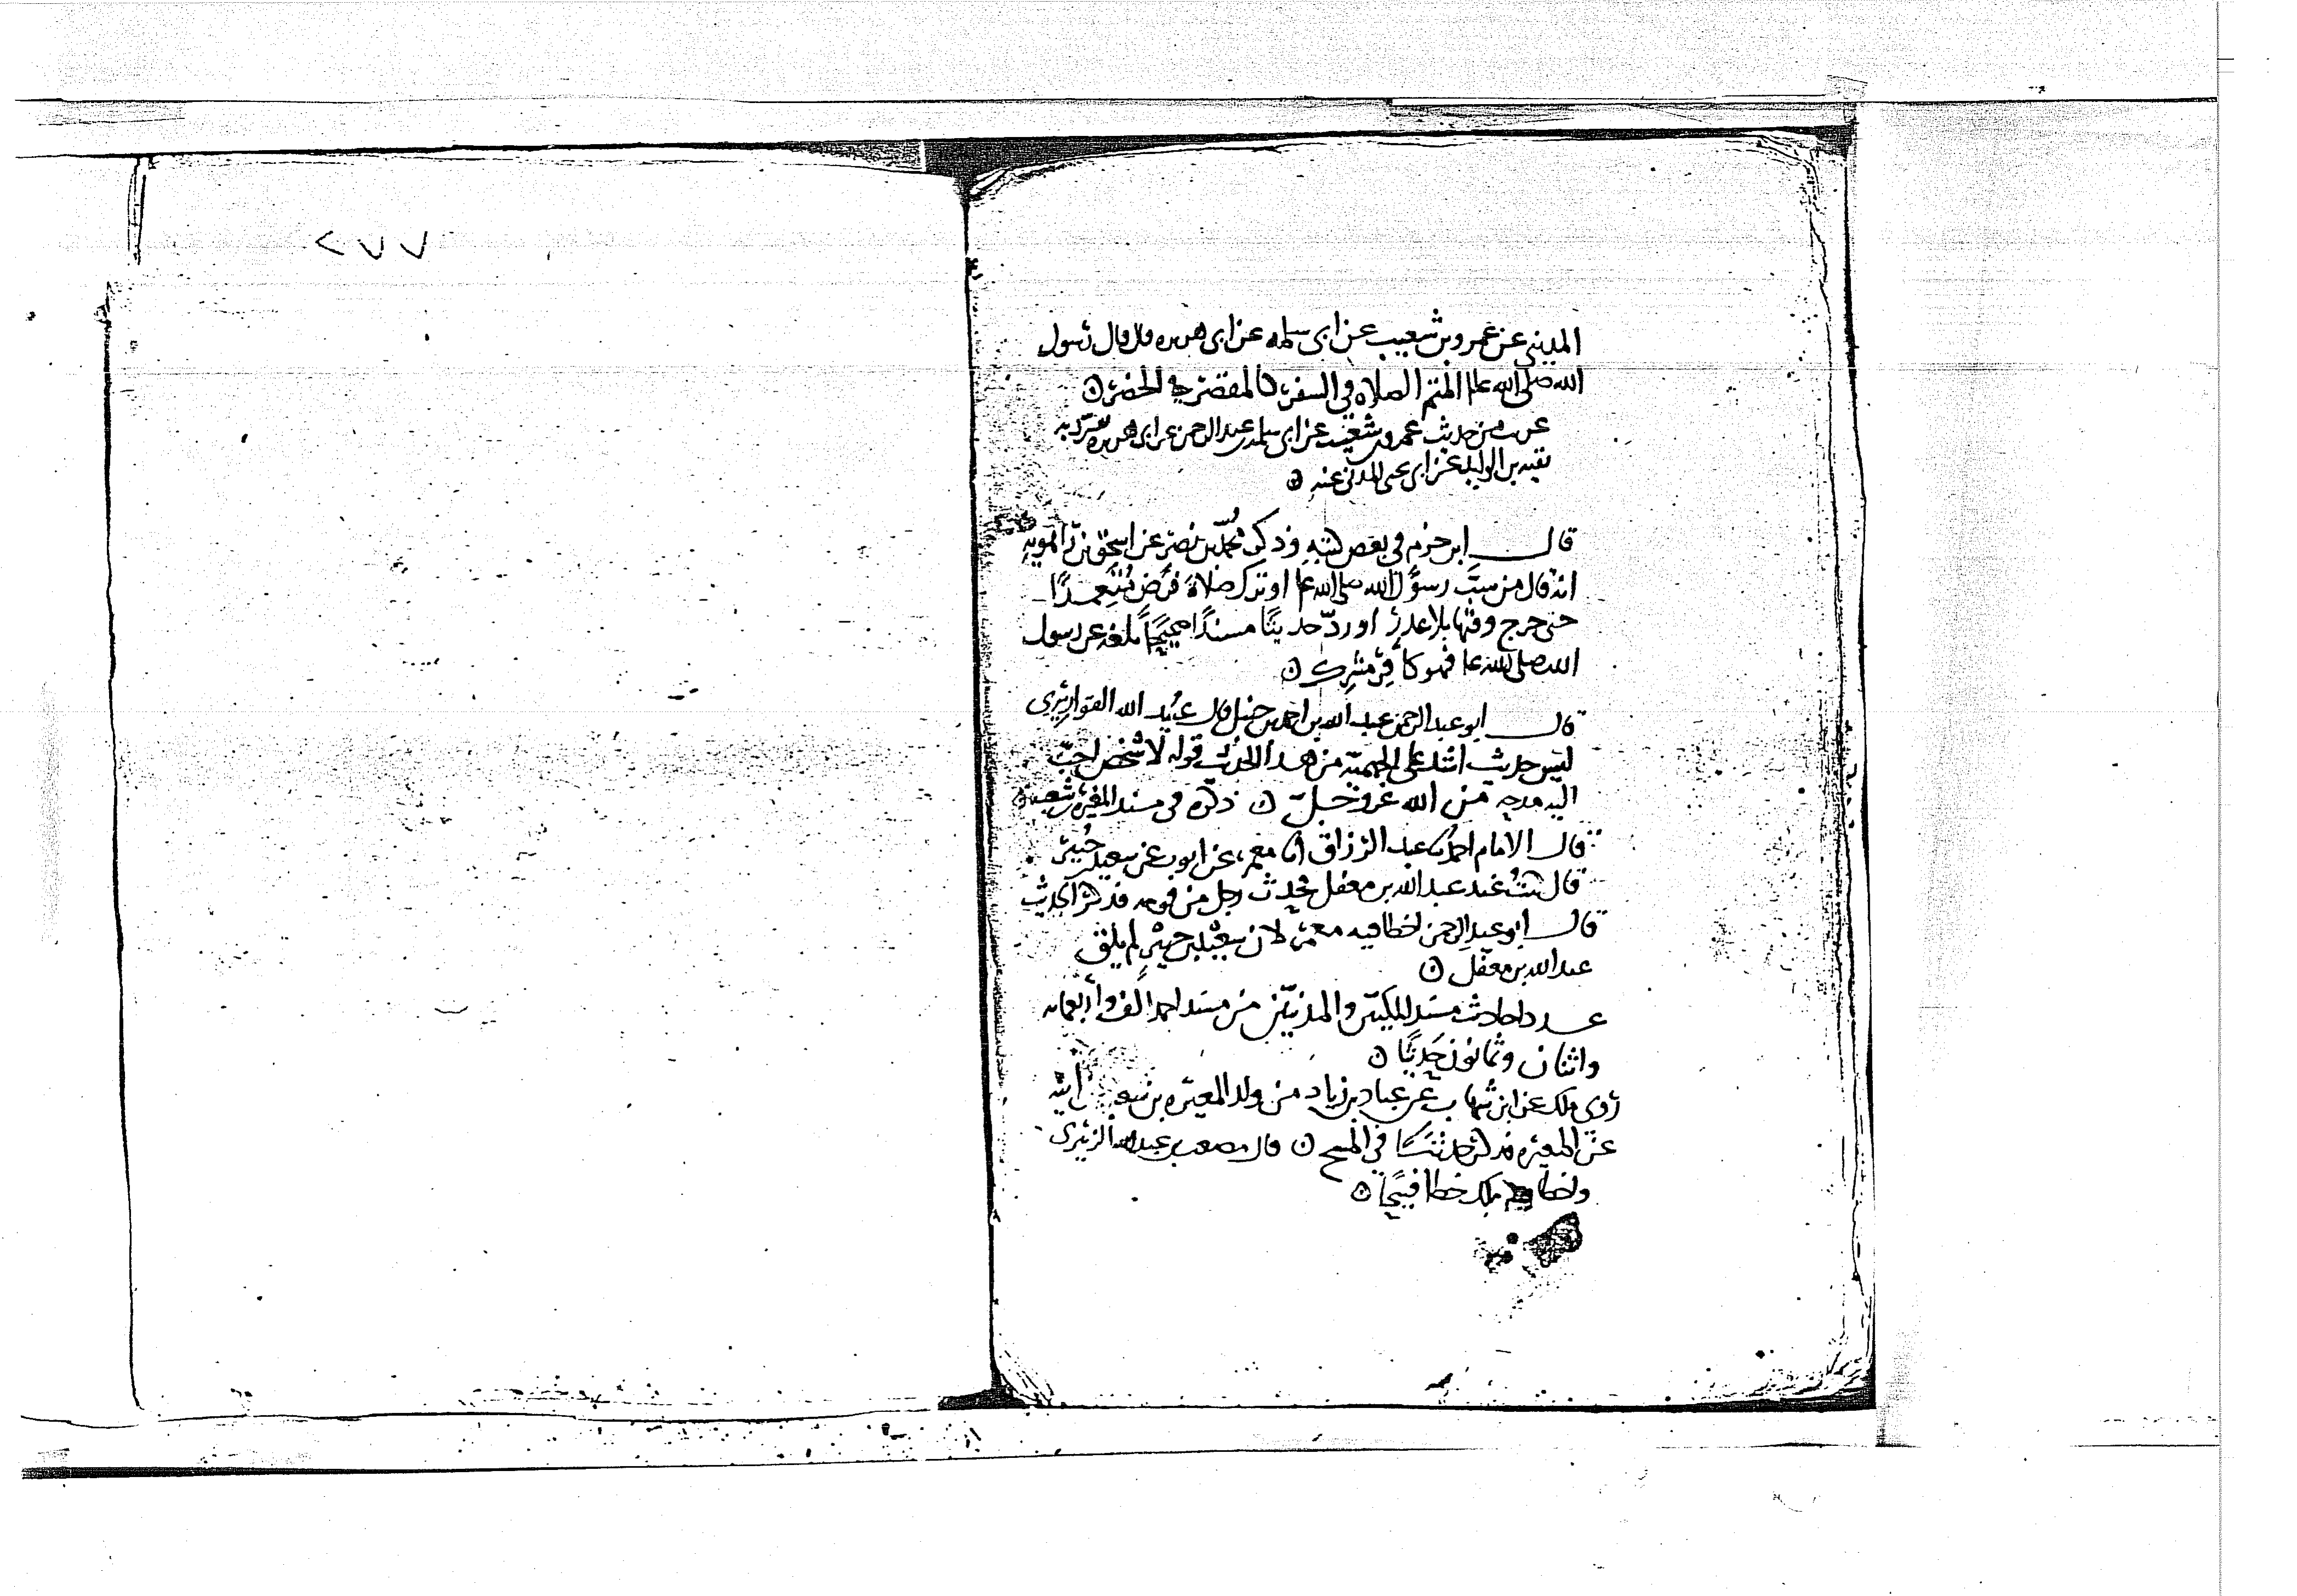 المديني عن عمرو بن شعيب عن ابى سلمه عن ابى هريره قال قال رسول
الله صلى الله علىه المتم الصلاه في السفر كالمقصر في الحضر ن
غريب من حديث عمرو بن شعيب عن ابى سلمه بن عبد الرحمن عن ابى هريره تفرد به
بقيه بن الوليد عن ابى يحيى المدنى عنه ن
قال ابن حزم في بعض كتبه وذكر محمد بن نصر عن اسحق بن راهويه
انه قال من سب رسول الله صلى الله علىه او ترك صلاة فرض متعمدا
حتى خرج وقتها بلا عذر او رد حديثا مسندا صحيحا بلغه عن رسول
الله صلى الله علىه فهو كافر مشرك ن
قال ابو عبد الرحمن عبد الله بن احمد بن حنبل قال عبيد الله القواريرى
ليس حديث اشد على الجهمية من هذا الحديث قوله لا شخص احب
اليه مدحه من الله عز وجل ن ذكره فى مسند المغيره بن شعبه ن
قال الامام احمد ثنا عبد الرزاق انا معمر عن ايوب عن سعيد بن جبير
قال كنت عند عبد الله بن مغفل فخذف رجل من قومه فذكر الحديث
قال ابو عبد الرحمن اخطا فيه معمر لان سعيد بن جبير لم يلق
عبد الله بن مغفل ن
عدد احاديث مسند المكيين والمدنيين من مسند احمد الف وأربعمائه
واثنان وثمانون حديثا ن
روى ملك عن ابن شهاب عن عباد بن زياد من ولد المغيره بن شعبه عن ابيه
عن المغيره فذكر حديثا في المسح ن قال مصعب بن عبد الله الزبيرى
واخطا فيه ملك خطا قبيحا ن
٢٧٧